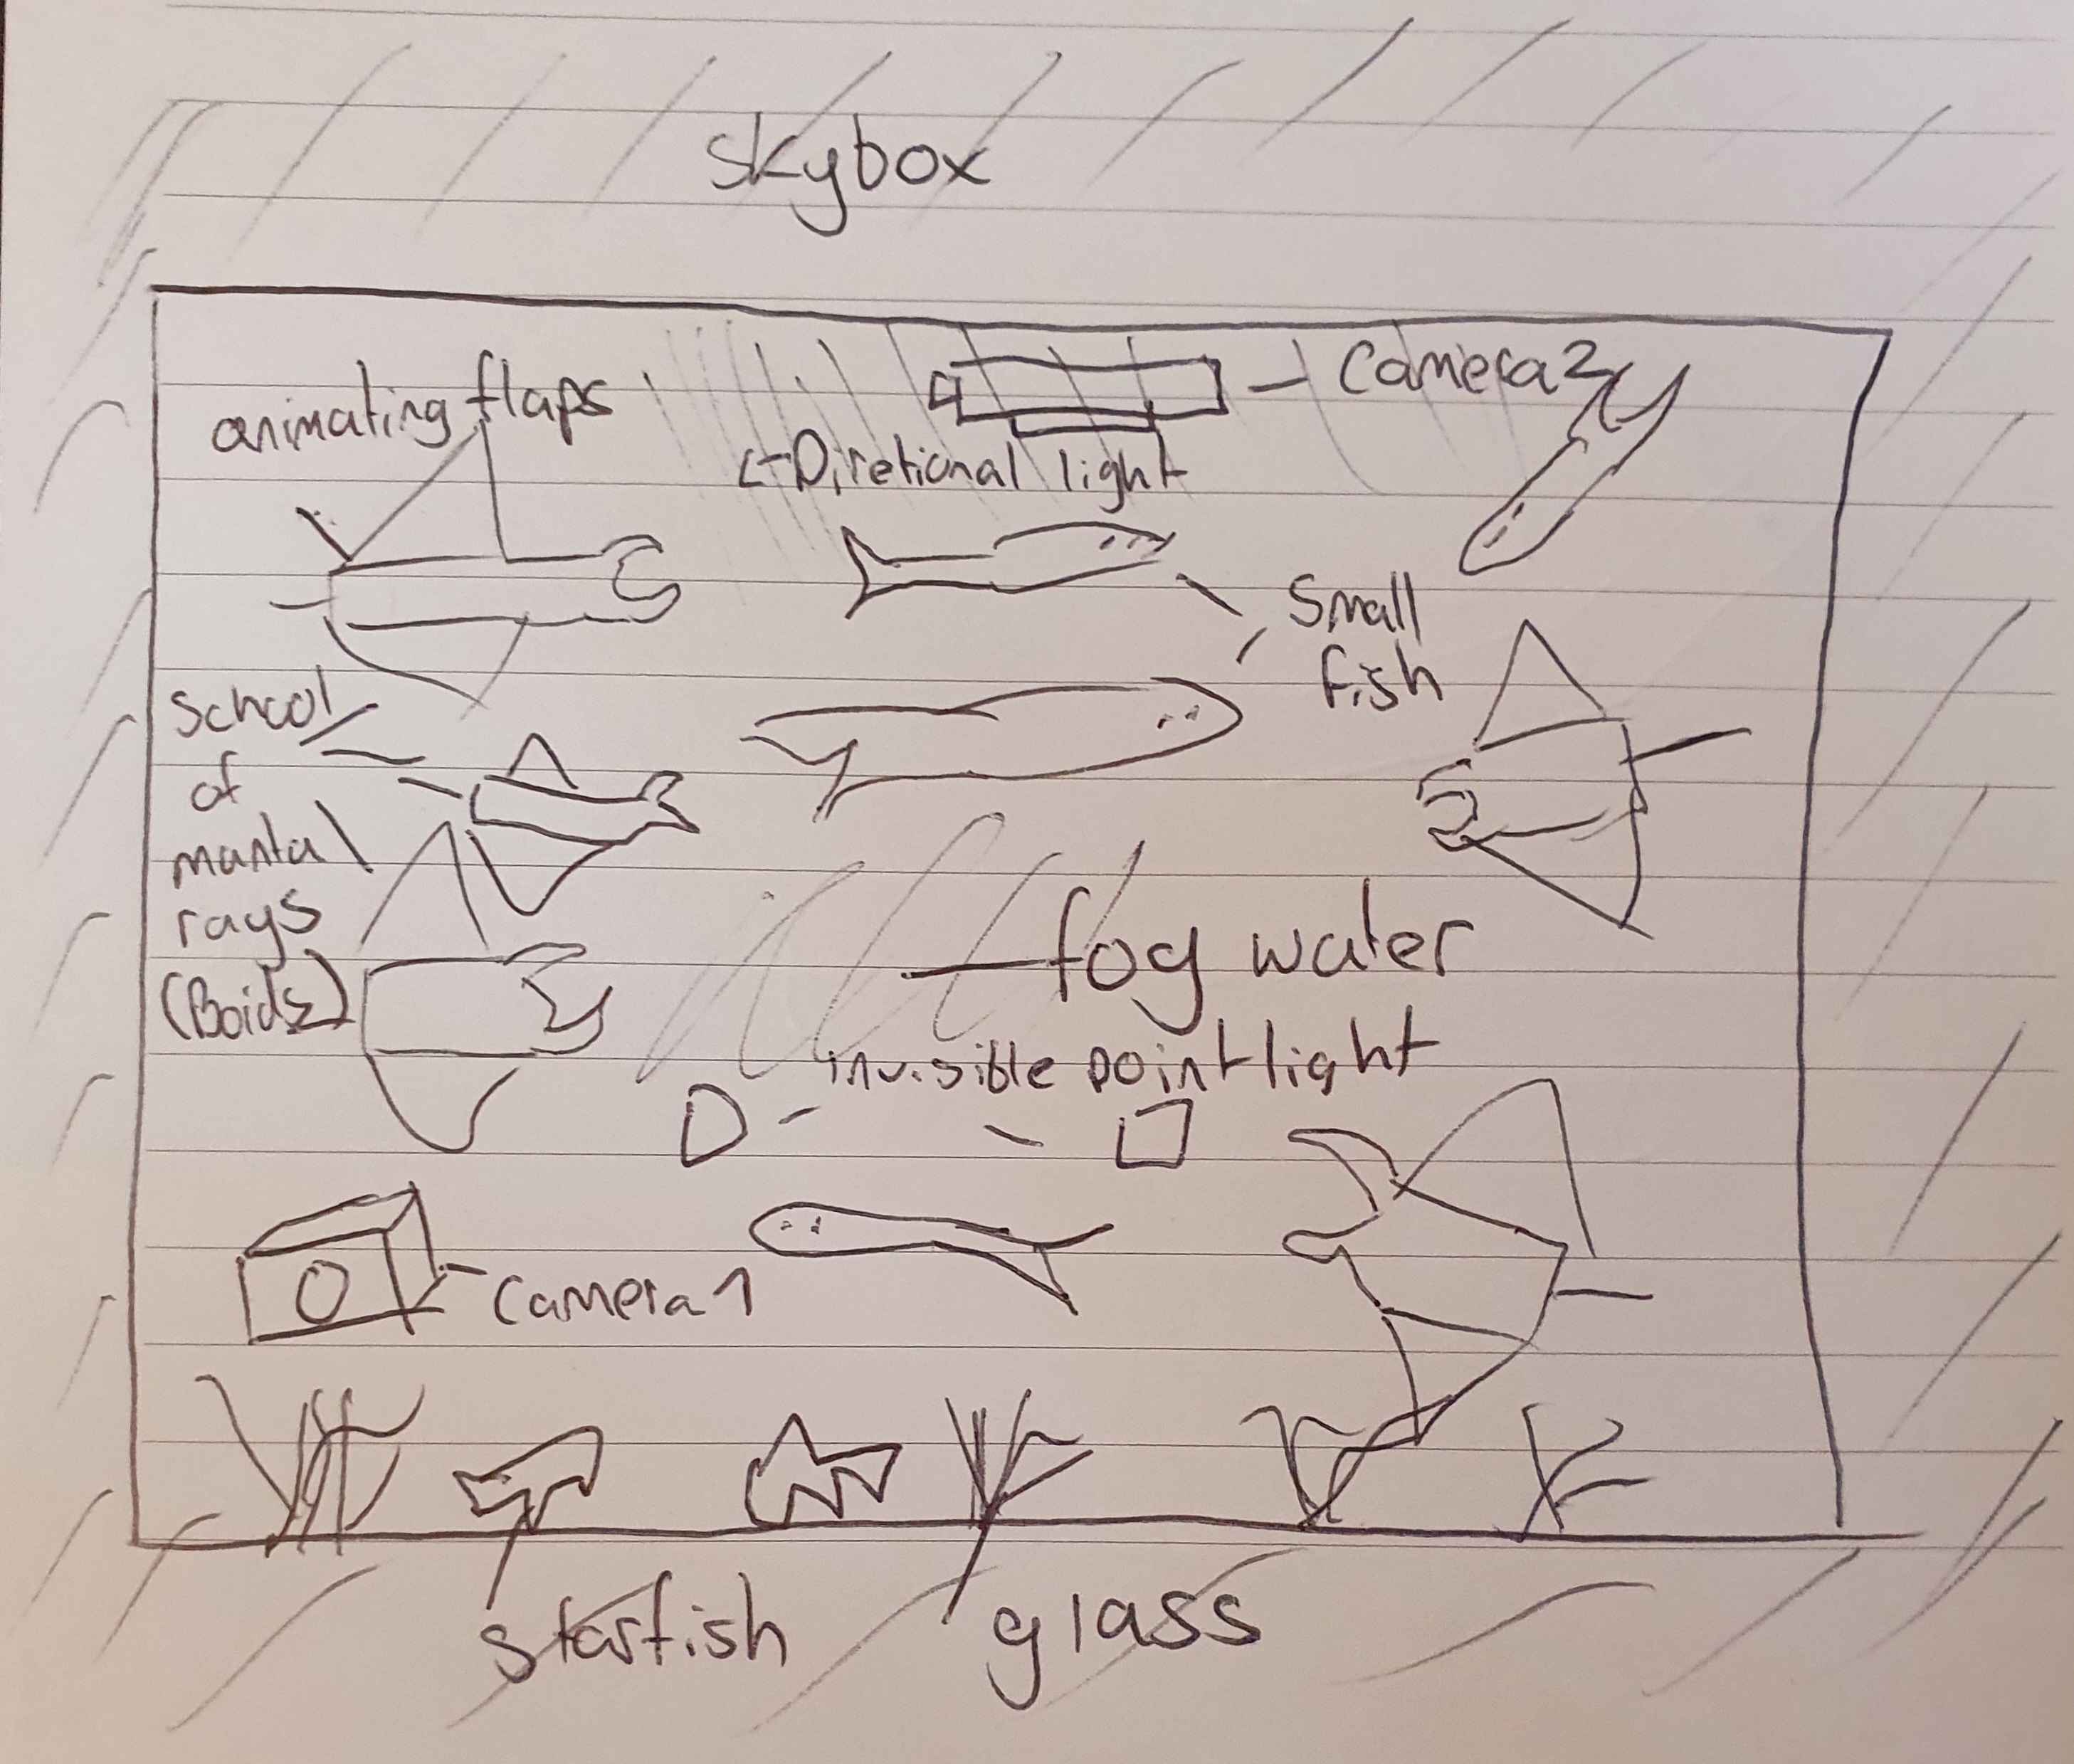 skybox
animating flaps
Camera2
<-Diretional light
Small
fish
School
of
manta
rays
(Boids)
fog water
invisible pointlight
Camera1
starfish
glass